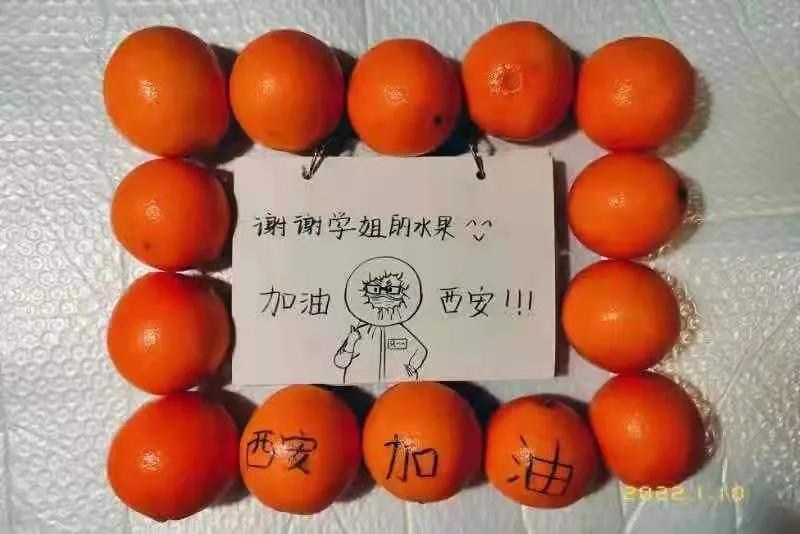 谢谢学姐的水果^^
加油 西安!!!
西安 加 油
2022.1.10